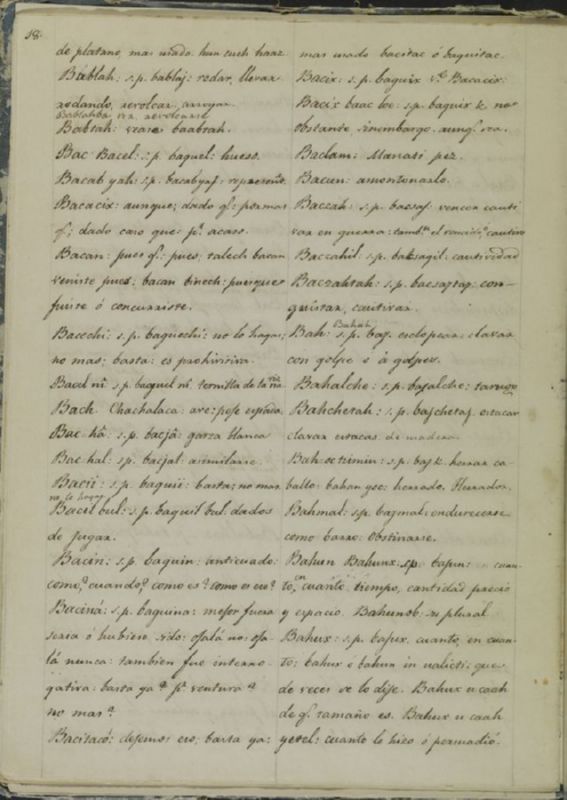 18.
de platano, mas usado. hun cuch haaz.
Bablah: s.p. bablaj: rodar, llevar
rodando, revolcar, arrojar.
Bablahba
Babtah: vease baabtah.
Bac Bacel: s.p. baquel: hueso.
Bacab yah: s.p.
Bacacix: aunque; dado q.e: por mas
q.e: dado caso que: p.r acaso.
Bacan: pues q.e: pues; talech bacan
veniste pues: bacan binech: puesque
fuiste ó concurriste.
Bacechi: s.p. baquechi: no lo hagas;
no mas; basta: es prohivitiva.
Bacel ni: s.p. baquel ni. ternilla de la nariz
Bach. Chachalaca: ave:
Bac ha: s.p. bacjá: garza blanca
Bac hal: s.p. bacjal: asimilarse.
Bacii: s.p. baquié: basta; no mas
no lo hagas
Bacil bul: s.p. baquil bul. dados
de jugar.
Bacin: s.p. baquin: anticuado:
como,? cuando? como es? como es eso?
Baciná: s.p. baquina: mejor fuera
seria ó hubiera sido: ojalá no: oja-
lá nunca: tambien fue interro-
gativa: basta ya? p.r ventura?
no mas?
Bacitacó: dejemos eso; basta ya:
mas usado bacitac ó baquitac.
Bacix: s.p. baquix v.e Bacacix:
Bacix baac loe: s.p. baquix &. no
obstante, sinembargo, aunq.e sea.
Baclam: Manati pez.
Bacun: amontonarlo.
Baczah: s.p. bacsaj. vencer cauti
var en guerra: tamb.n el vencido,? cautivo
Baczahil: s.p. baksagil: cautividad
Baczahtah: s.p. bacsajtaj: con-
quistar, cautivar.
Bahah
Bah: s.p. baj. esclopear: clavar
con golpe ó á golpes.
Bahalche: s.p. bajalche: tarugo
Bahchetah: s.p. bajchetaj. estacar
clavar estacas de madera.
Bah octzimin: s.p. baj &. herrar ca
ballo: bahan yoc: herrado. Herrador.
Bahmal: s.p. bajmal: endurecerse
como barro: obstinarse.
Bahun Bahunx. s.p. bajun: en cuan
to, en cuanto tiempo, cantidad precio
y espacio. Bahunob: su plural
Bahux: s.p. bajux. cuanto, en cuan-
to; bahux ó bahun in ualicti: que
de veces se lo dije. Bahux u caah
de q.e tamaño es. Bahux u caah
yetel: cuanto lo hizo ó persuadió.